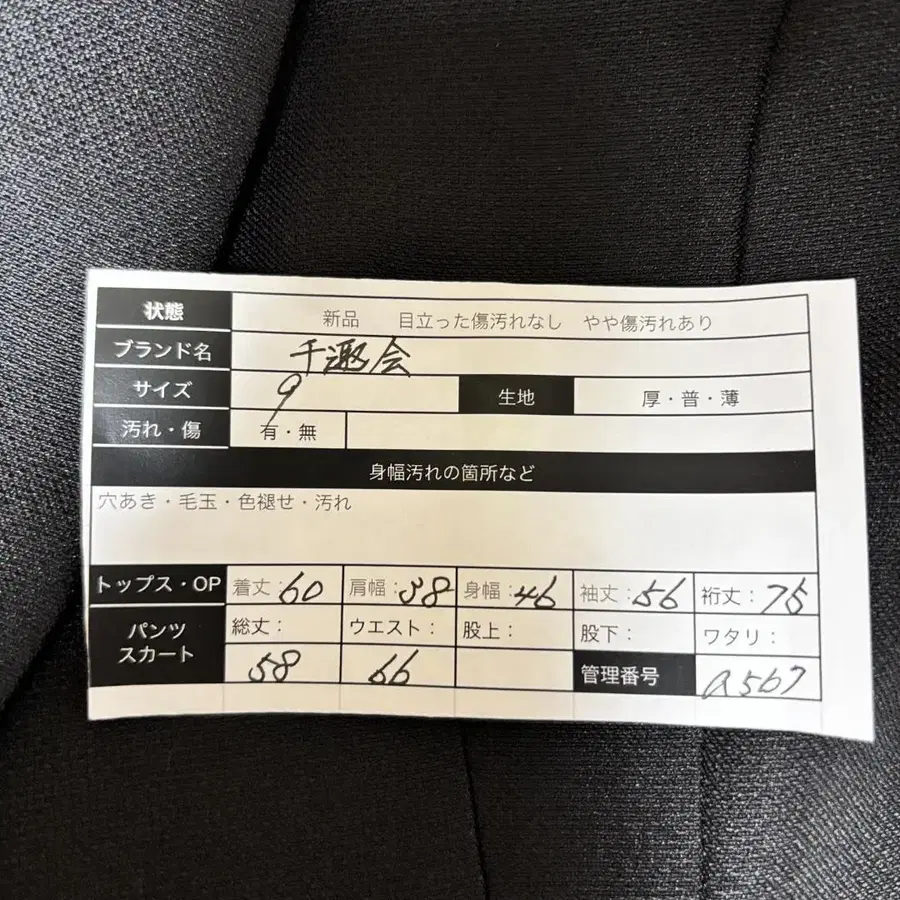 状態 新品 目立った傷汚れなし やや傷汚れあり
ブランド名 千趣会
サイズ 9 生地 厚・普・薄
汚れ・傷 有・無
身幅汚れの箇所など
穴あき・毛玉・色褪せ・汚れ
トップス・OP 着丈:60 肩幅:38 身幅:46 袖丈:56 裄丈:75
パンツ スカート 総丈: ウエスト: 股上: 股下: ワタリ:
58 66 管理番号 a567